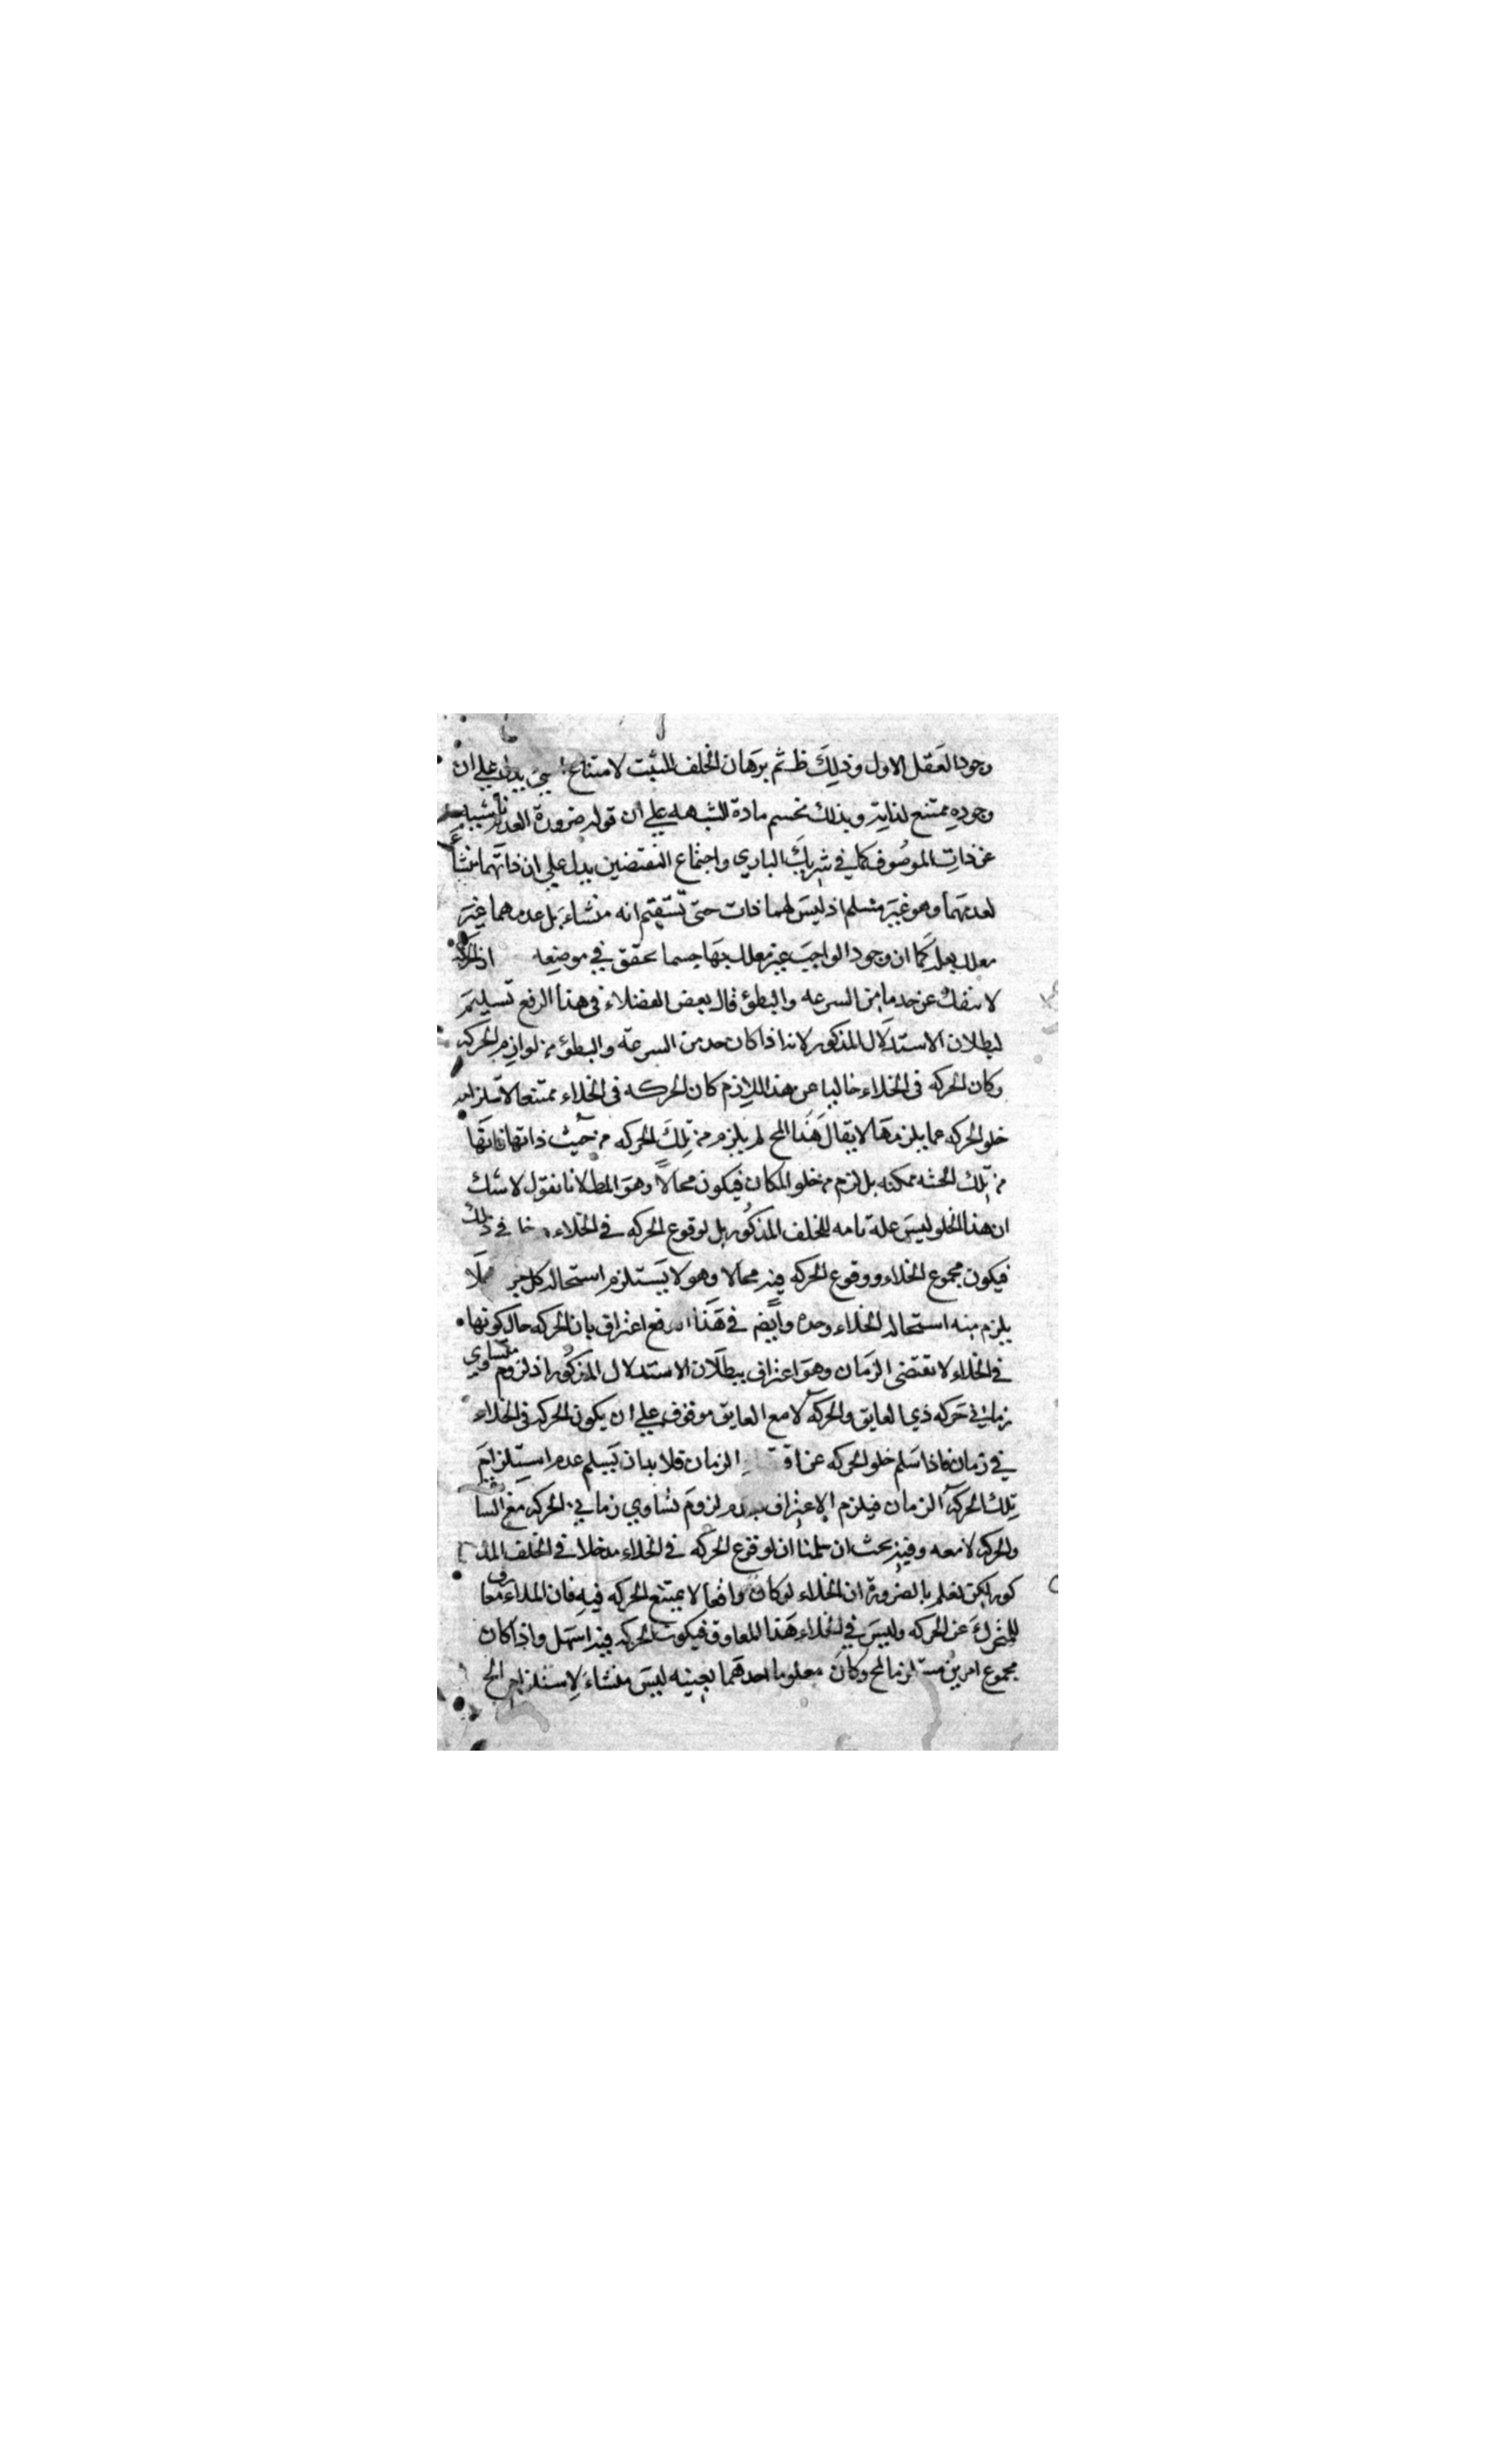 وجود العقل الاول وذلك ظ ثم برهان الخلف المثبت لامتناع يدل على ان
وجوده ممتنع لذاته وبذلك تحسم مادة الشبهه على ان قوله ضرورة العدم ناشيه
عن ذات الموصوف كما في شريك الباري واجتماع النقيضين يدل على ان ذاتهما منشأ
لعدمهما وهو غير مسلم اذ ليس لهما ذات حتى تستقيم انه منشاء بل عدمهما غير
معلل بعلة كما ان وجود الواجب غير معلل بها حسما تحقق في موضعه اذ الحركة
لا تنفك عن حد ما من السرعه والبطؤ قال بعض الفضلاء في هذا الرفع تسليم
لبطلان الاستدلال المذكور لانه اذا كان حد من السرعة والبطؤ من لوازم الحركه
وكان الحركه في الخلاء خاليا عن هذا اللازم كان الحركه في الخلاء ممتنعا لاستلزامه
خلو الحركه عما يلزمها لا يقال هذا المح لم يلزم من تلك الحركه من حيث ذاتها فانها
من تلك الحيثه ممكنه بل لزم من خلو المكان فيكون محالا وهو المط لانا نقول لا شك
ان هذا الخلو ليس علة تامه للخلف المذكور بل لوقوع الحركه في الخلاء في ذلك
فيكون مجموع الخلاء ووقوع الحركه فيه محالا وهو لا يستلزم استحالة كل جزء فلا
يلزم منه استحالة الخلاء وحده وايضم في هذا الدفع اعتراف بان الحركه حال كونها
في الخلاء لا تقتضى الزمان وهو اعتراف ببطلان الاستدلال المذكور اذ لزوم تساوي
زماني حركه ذي العايق والحركة لا مع العايق موقوف على ان يكون الحركه في الخلاء
في زمان فاذا سلم خلو الحركه عن الزمان فلا بد ان يسلم عدم استلزام
تلك الحركة الزمان فيلزم الاعتراف بعدم لزوم تساوي زماني الحركه مع
والحركه لا معه وفيه بحث ان سلمنا ان لوقوع الحركه في الخلاء مدخلا في الخلف المذ
كور لكن نعلم بالضرورة ان الخلاء لو كان واقعا لا يمتنع الحركه فيه فان الملاء معاوق
للمتحرك عن الحركه وليس في الخلاء هذا المعاوق فيكون الحركه فيه اسهل واذا كان
مجموع امرين مستلزما لمح وكان معلوما احدهما بعينه ليس منشاء لاستلزام المح